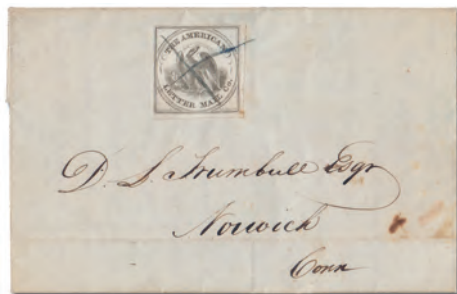 THE AMERICAN
LETTER MAIL Co.
D. S. Trumbull Esqr
Norwich
Conn